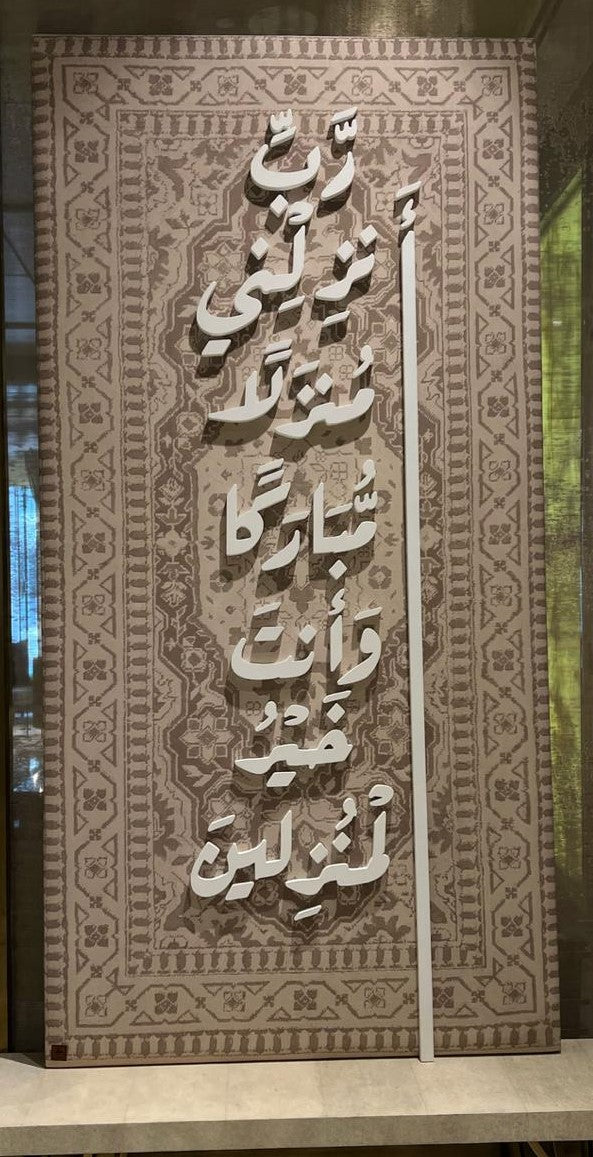 رَّبِّ
أَنزِلْني
مُنزَلًا
مُّبَارَكًا
وَأَنتَ
خَيْرُ
الْمُنزِلينَ